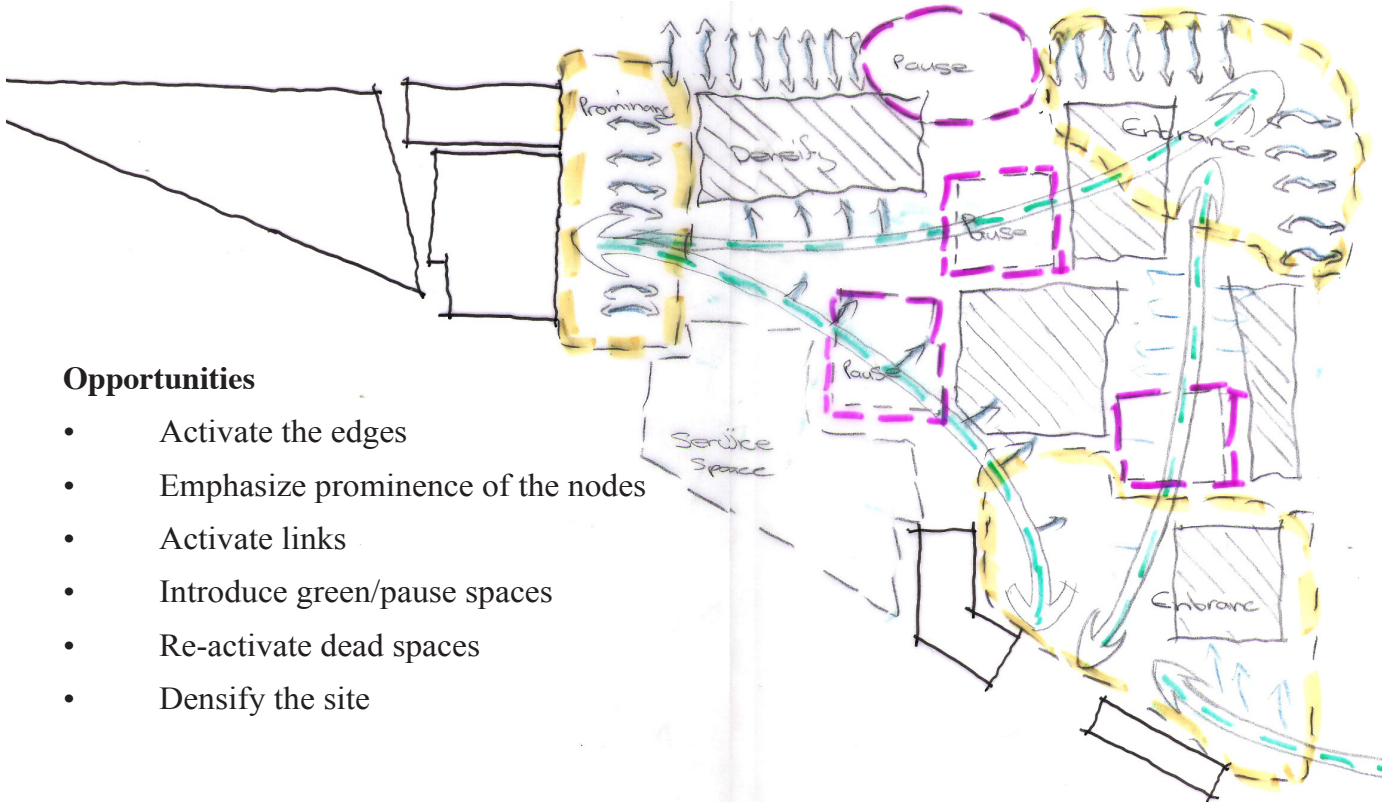 Pause
Prominance
Entrance
Density
Pause
Pause
Service
Space
Entranc
Opportunities
• Activate the edges
• Emphasize prominence of the nodes
• Activate links
• Introduce green/pause spaces
• Re-activate dead spaces
• Densify the site